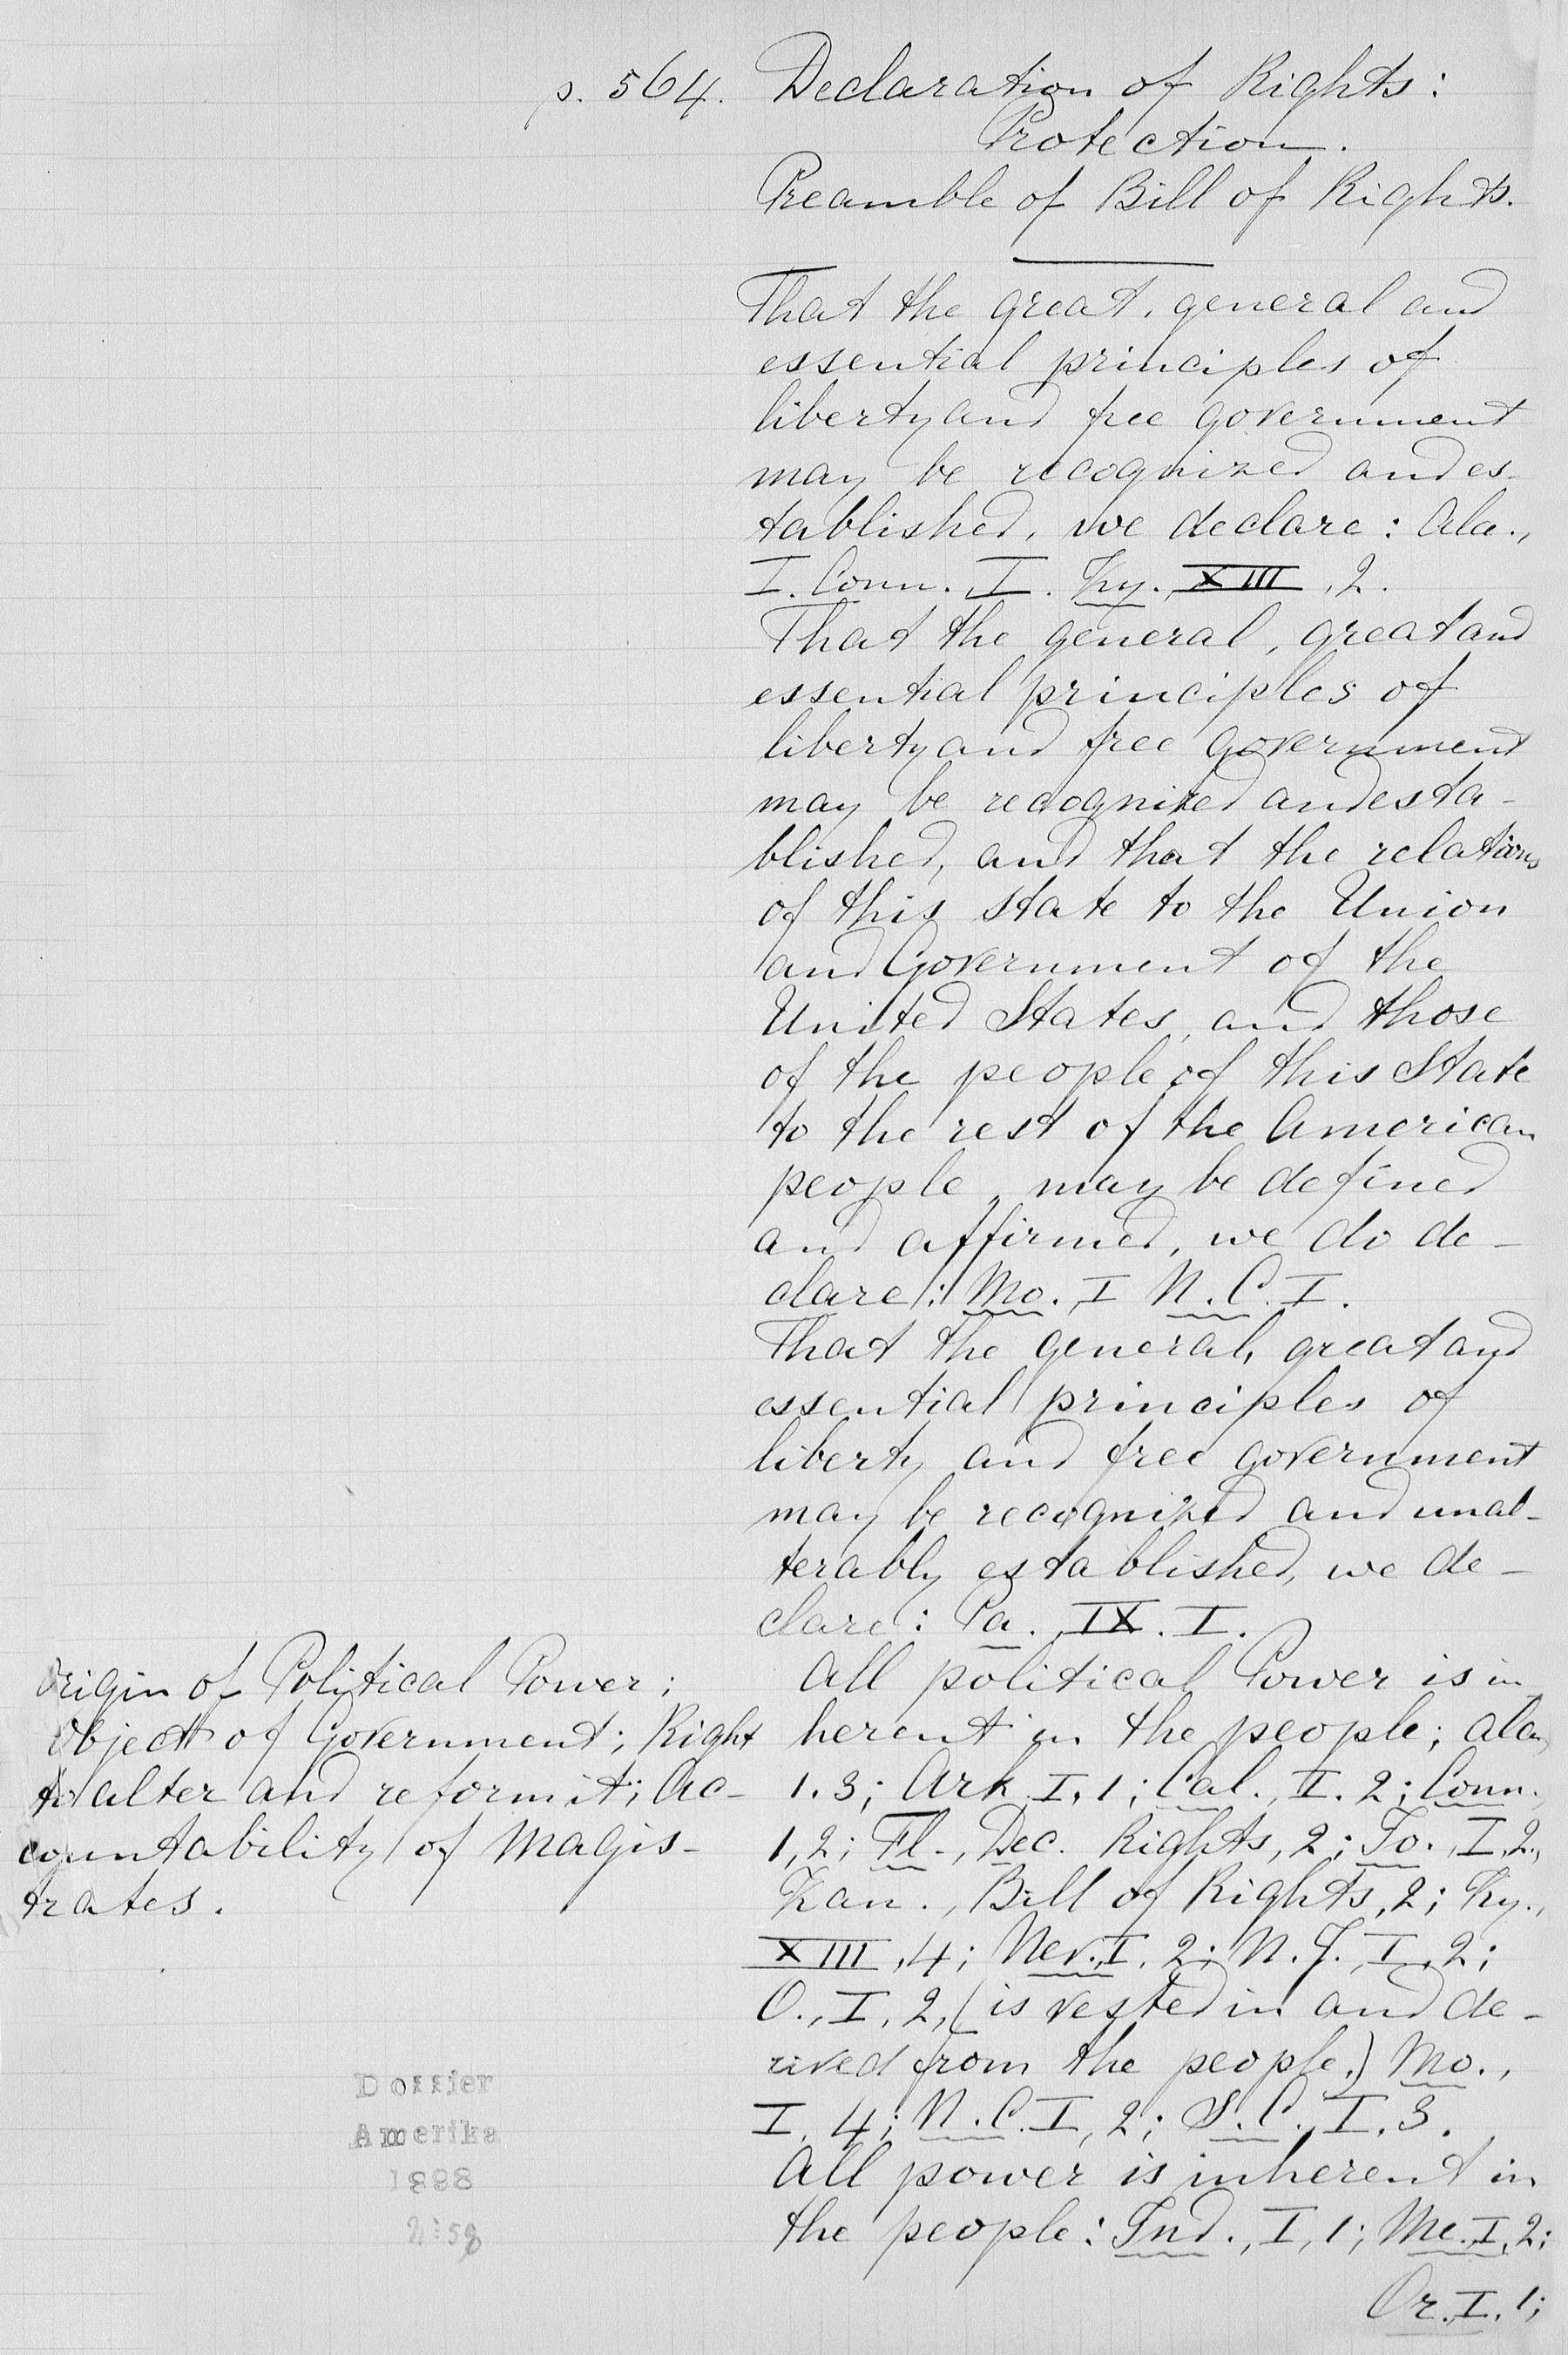 p. 564. Declaration of Rights:
Protection.
Preamble of Bill of Rights.
That the great, general and
essential principles of
liberty and free government
may be recognized and es-
tablished, we declare: Ala.,
I. Conn. I. Ky. XIII, 2.
That the general, great and
essential principles of
liberty and free government
may be recognized and esta-
blished, and that the relations
of this state to the Union
and Government of the
United States, and those
of the people of this State
to the rest of the American
people, may be defined
and affirmed, we do de-
clare: Mo. I N. C. I.
That the general, great and
essential principles of
liberty and free government
may be recognized and unal-
terably established, we de-
clare: Pa. IX. I.
Origin of Political Power;
Object of Government; Right
to alter and reform it; Ac-
countability of Magis-
trates.
All political Power is in-
herent in the people; Ala.,
1. 3; Ark. I, 1; Cal., I. 2; Conn.,
1, 2; Fl., Dec. Rights, 2; Io., I, 2.,
Kan., Bill of Rights, 2; Ky.,
XIII, 4; Nev. I, 2; N. J. I, 2;
O., I, 2, (is vested in and de-
rived from the people.) Mo.,
I, 4; N. C. I, 2; S. C., I. 3.
All power is inherent in
the people: Ind., I, 1; Me. I, 2;
Or. I. 1;
Dossier
Amerika
1898